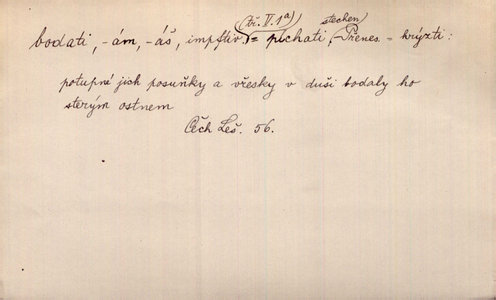 bodati, -ám, -áš, impftiv. (tř. V. 1a) = píchati, stechen, Přenes. = hrýzti:
potupné jich posuňky a vřesky v duši bodaly ho
sterým ostnem
Čěch Leš. 56.